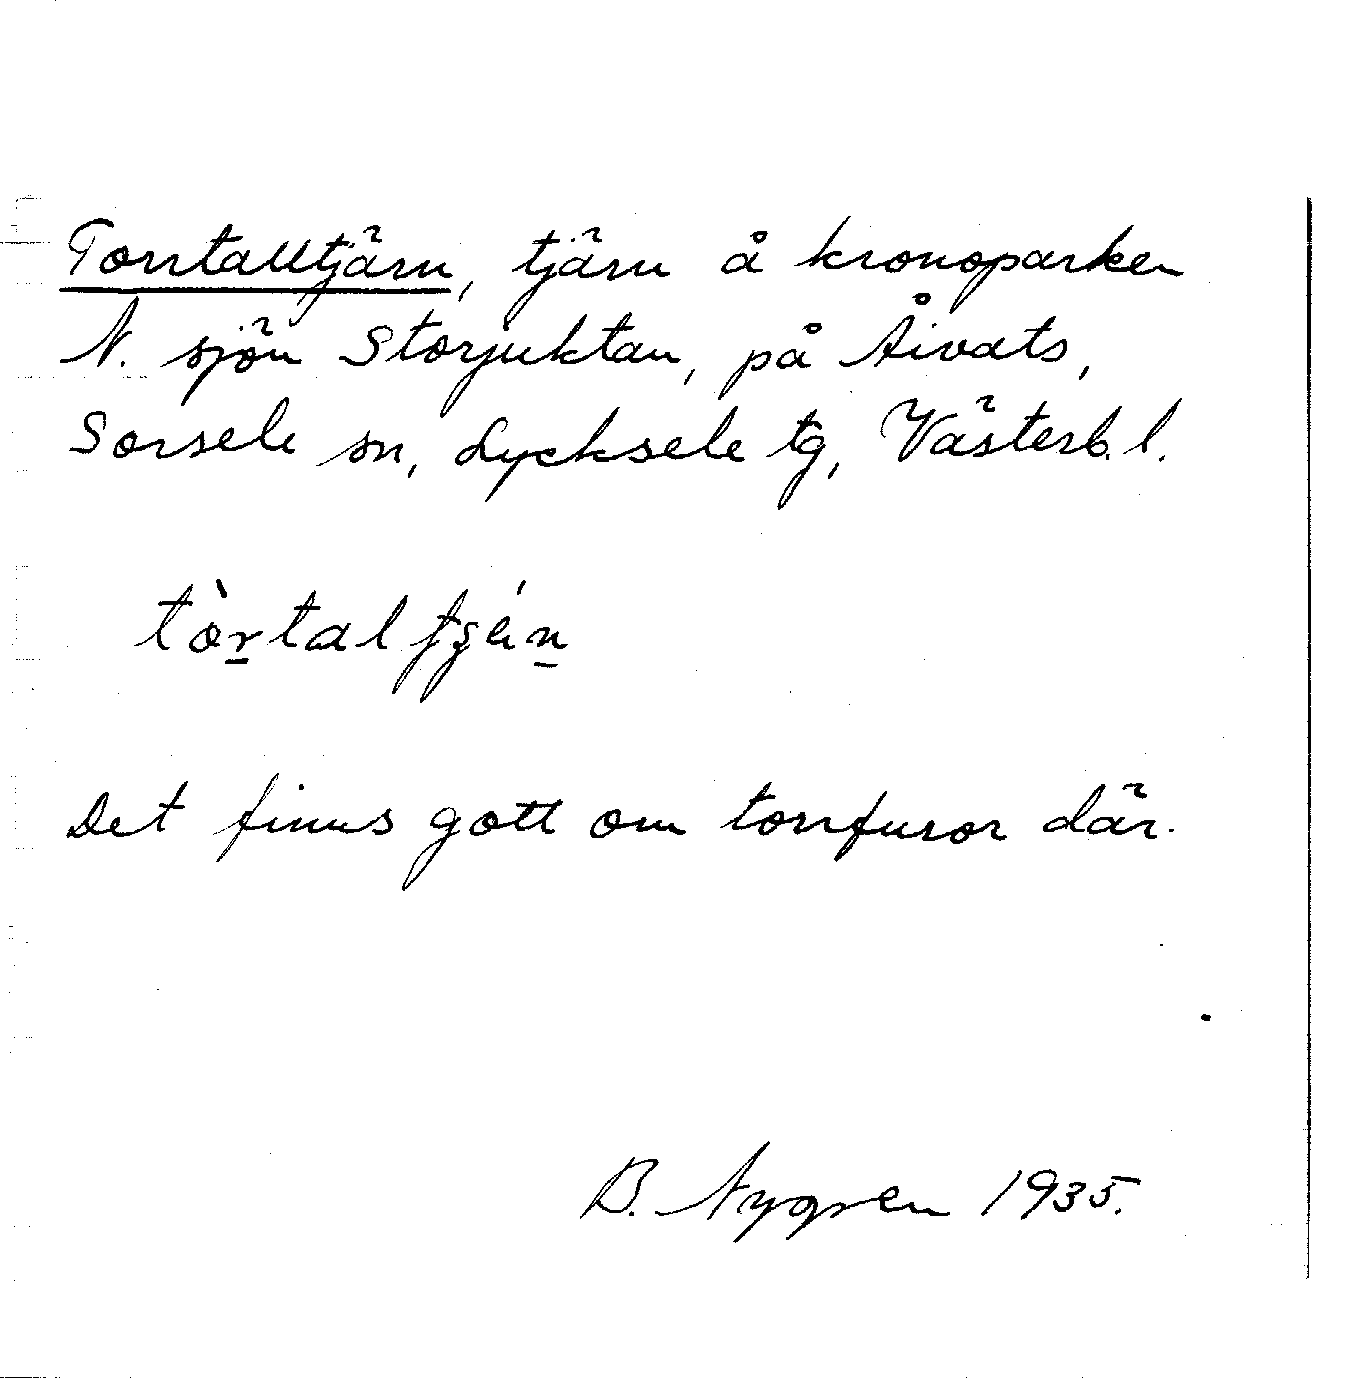 Torrtalltjärn, tjärn å kronoparken
N. sjön Storjuktan, på Åivats,
Sorsele sn, Lycksele tg, Västerb. l.
tòrtal
Det finns gott om torrfuror där.
B. Nygren 1935.